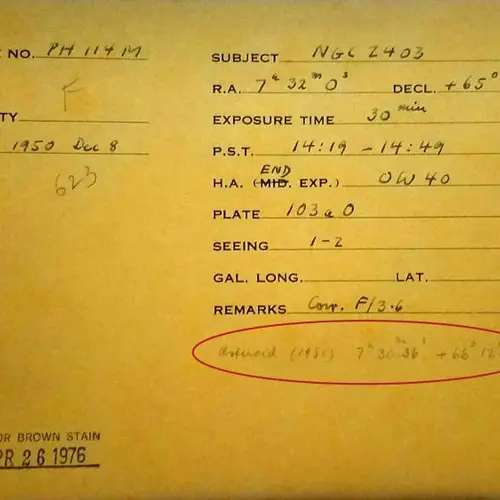 NO. PH 114 M
SUBJECT NGC 2403
R.A. 7h 32m 0s DECL. +65°
F
TY
EXPOSURE TIME 30 min
1950 Dec 8
P.S.T. 14:19 - 14:49
623
END
H.A. (MID. EXP.) 0W 40
PLATE 103a O
SEEING 1-2
GAL. LONG. LAT.
REMARKS Corr. F/3.6
Asteroid (1951) 7h 30m 36s +66° 12'
OR BROWN STAIN
PR 26 1976